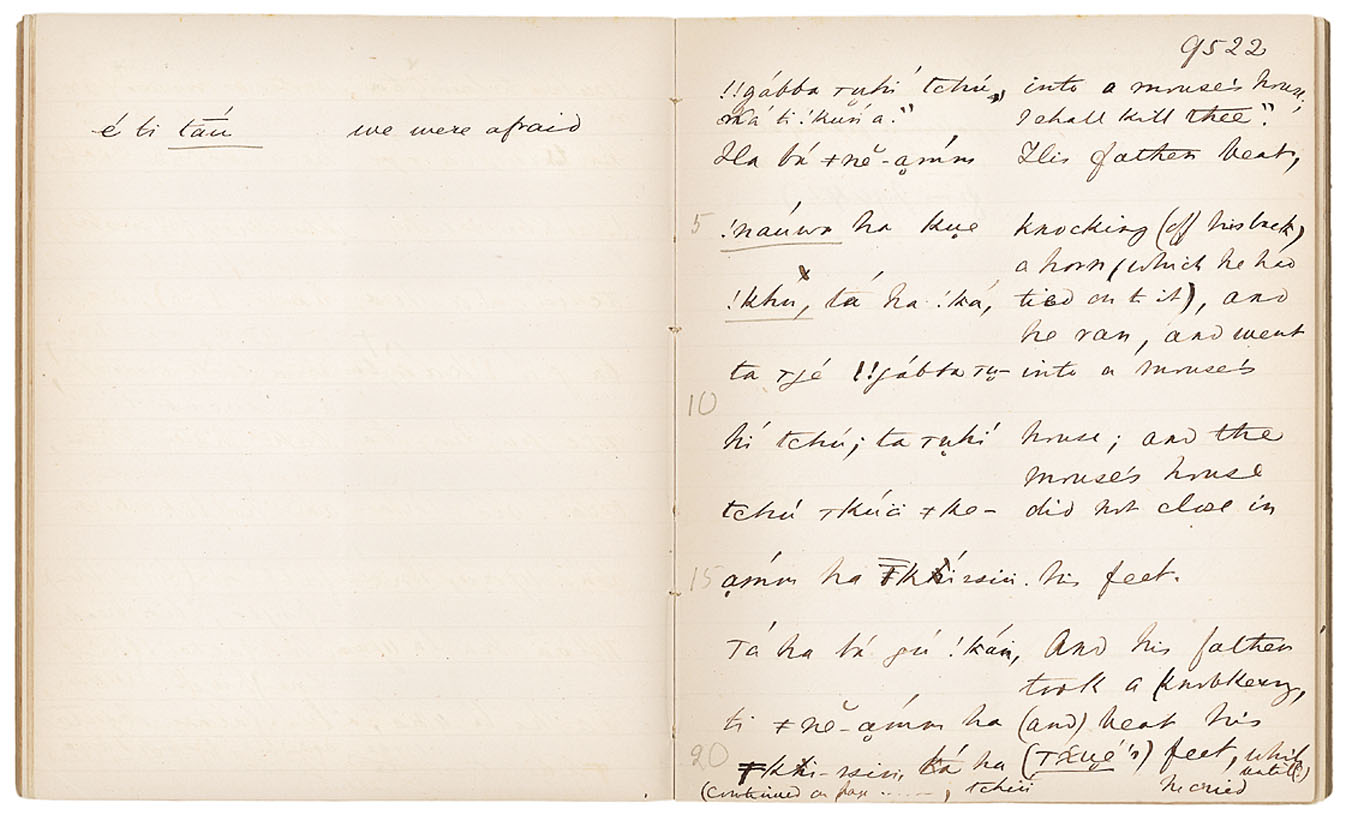 é ti táu we were afraid
9522
!!gábba tu̱hí tchú," into a mouse's house;
ṁá ti !kúṅ a." I shall kill thee".
Ha bá ǂnĕ-a̱ḿm His father beat,
5 !náuwa ha ku̱e knocking (off his back)
a horn (which he had
!khú, tá ha !ká, tied on to it), and
he ran, and went
ta ⊤gé !!gábba ⊤u̱- into a mouse's
10
hí tchú; ta ⊤u̱hí house; and the
mouse's house
tchú ⊤kúä ǂke- did not close in
15 a̱ḿm ha ǂkhírsin. his feet.
Tá ha bá gú !kái, And his father
took a knobkerry,
ti ǂnĕ-a̱ḿm ha (and) beat his
20 ǂkhi-rsin, tá ha (⊤xu̱é's) feet, while
until(?)
(continued on page ......, tchíi he cried